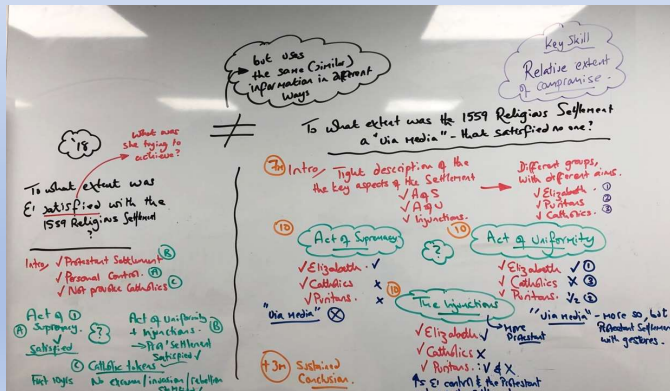 but uses
the same (similar)
information in different
ways
Key Skill
Relative extent
of compromise.
≠
'18
What was
she trying to
achieve?
To what extent was
E' satisfied with the
1559 Religious Settlement
?
Intro, ✓ Protestant Settlement (B)
✓ Personal Control. (A)
✓ Not provoke Catholics (C)
Act of (1)
(A) Supremacy.
✓ Satisfied
?
Act of Uniformity
+ Injunctions. (B)
Satisfied ✓
(C) Catholic tokens
First 10yrs
To what extent was the 1559 Religious Settlement
a "Via Media" - that satisfied no one?
7m Intro/ Tight description of the
the key aspects of the Settlement
✓ A of S
✓ A of U
✓ Injunctions.
Different groups,
with different aims.
✓ Elizabeth (1)
✓ Puritans (2)
✓ Catholics (3)
(10) Act of Supremacy
✓ Elizabeth ✓
✓ Catholics x
✓ Puritans. x
"Via Media" (X)
?
(10) Act of Uniformity
✓ Elizabeth ✓ (1)
✓ Catholics X (3)
✓ Puritans. ½ (2)
"Via Media" - More so, but
Protestant Settlement
with gestures.
(10) The Injunctions
✓ Elizabeth ✓
More
Protestant
✓ Catholics X
✓ Puritans: ✓ & X
E' control & the Protestant
+3m Sustained
Conclusion.